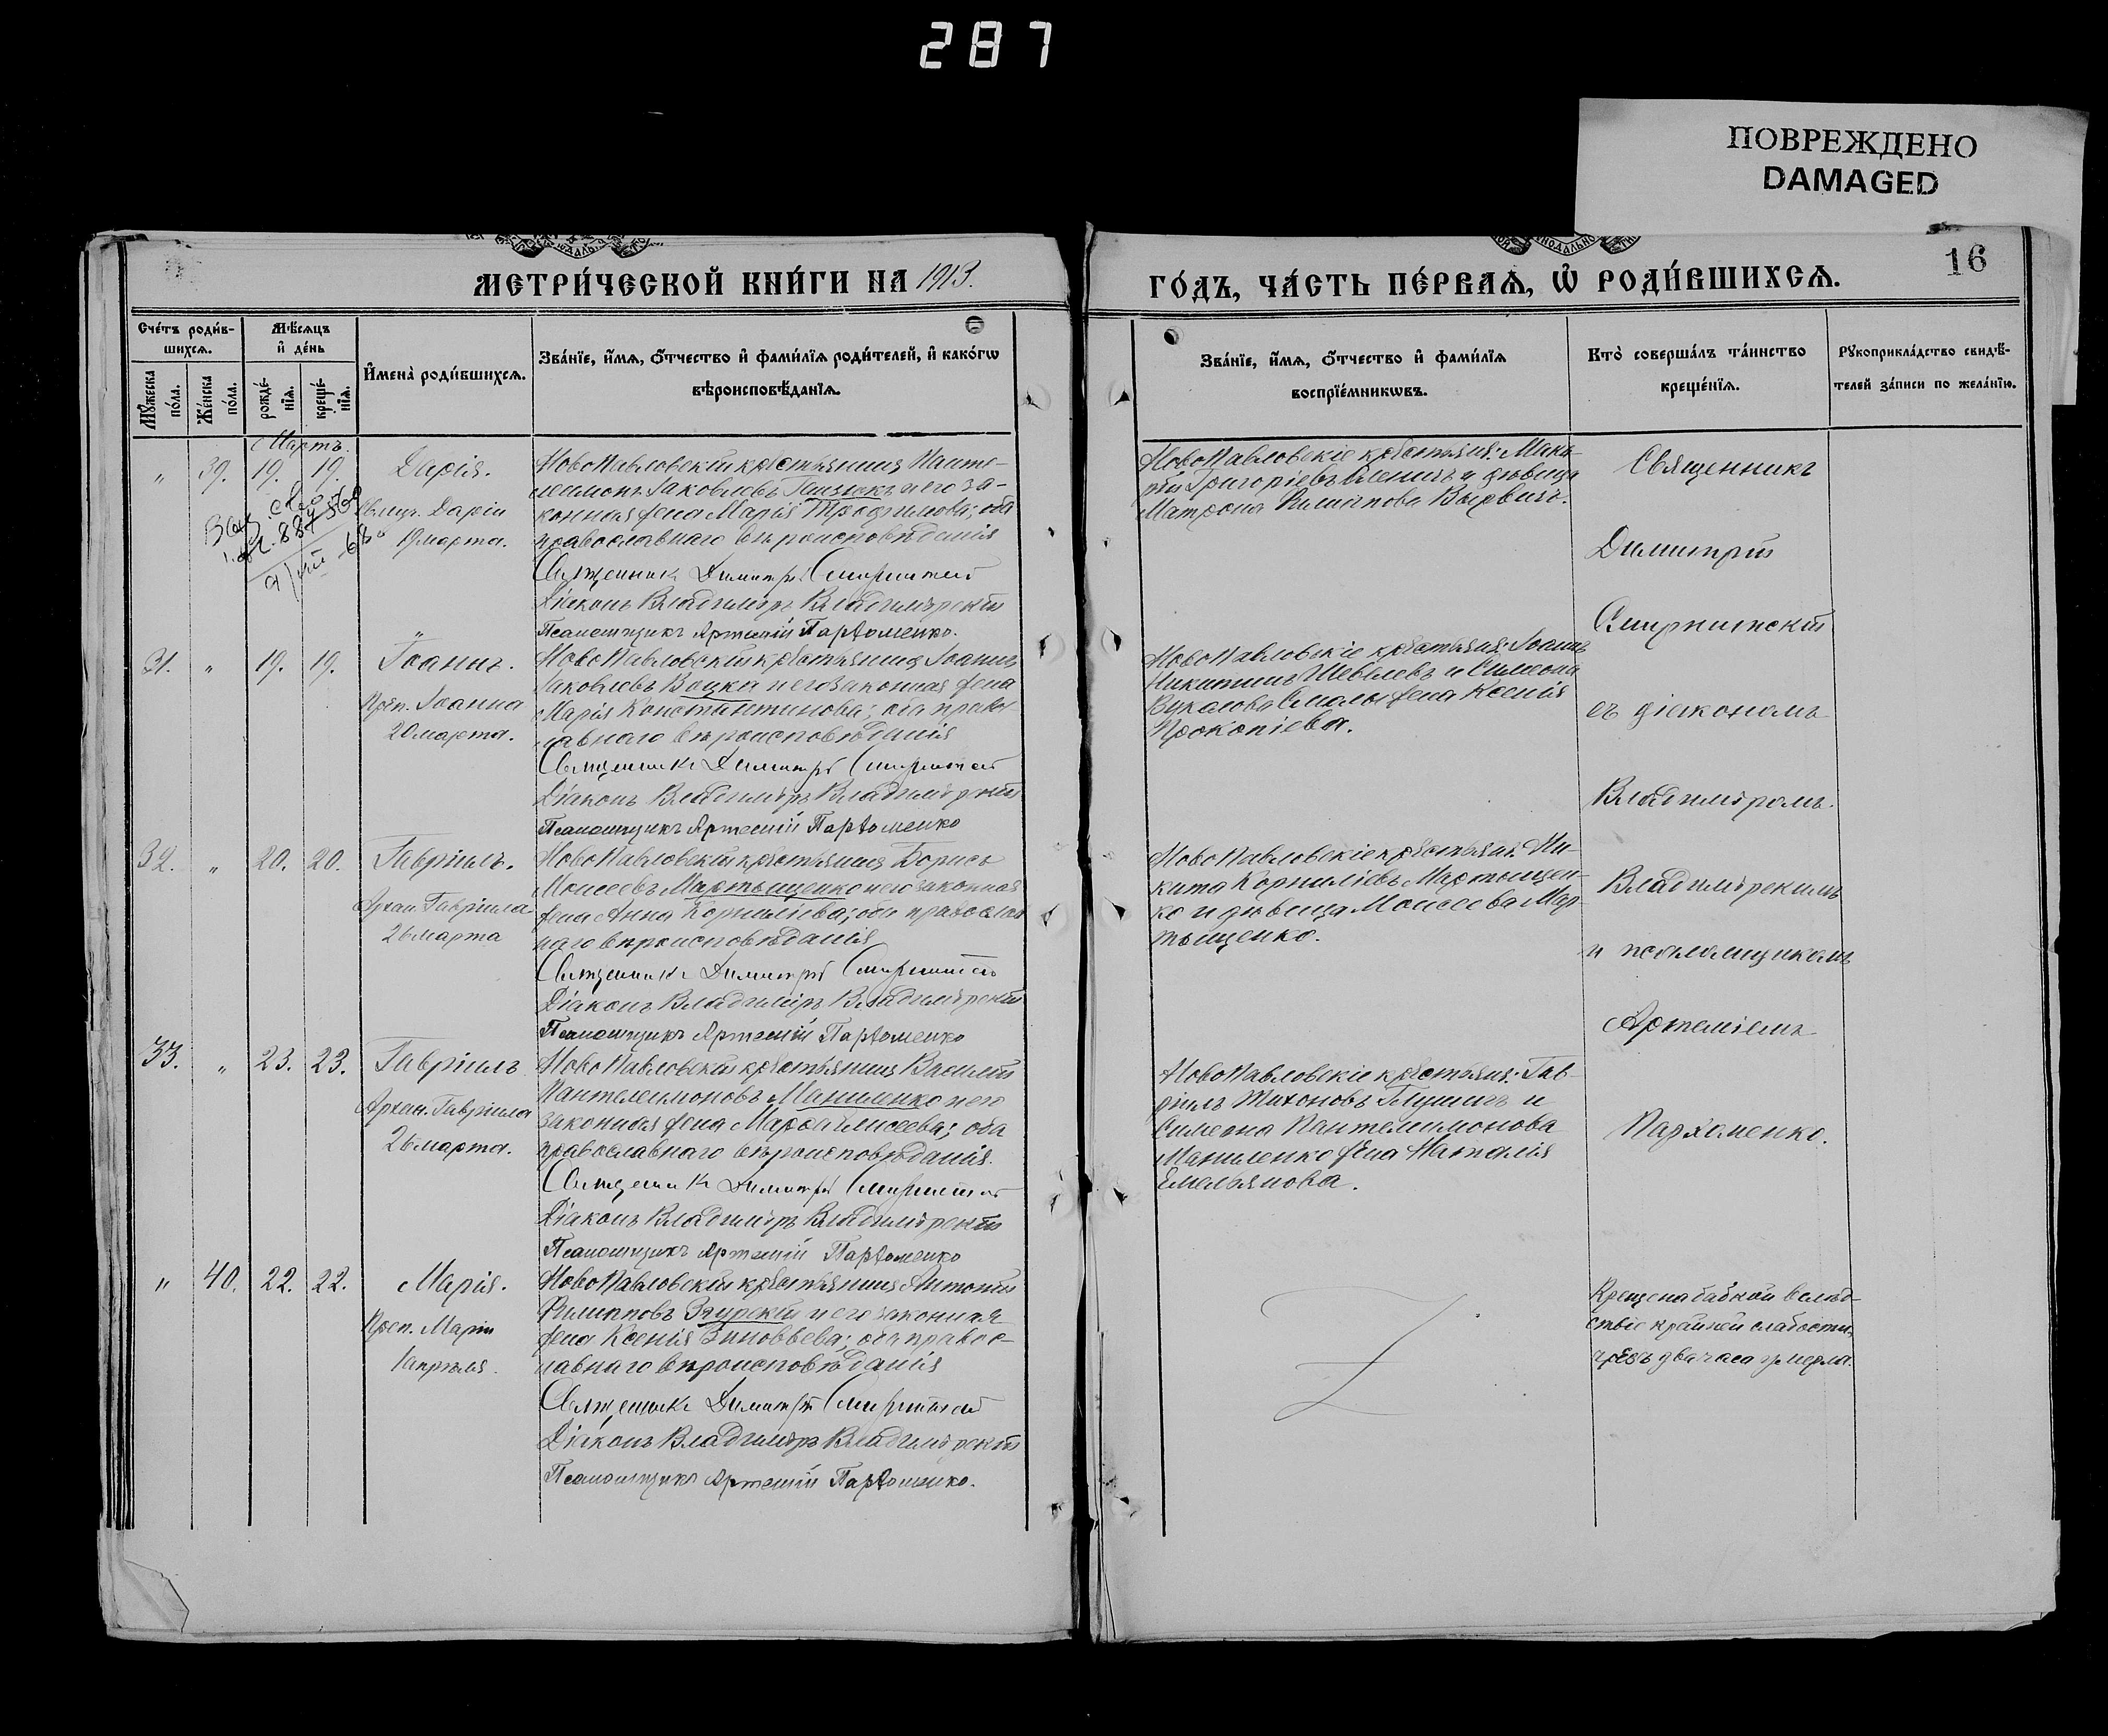 287
ПОВРЕЖДЕНО
DAMAGED
16
МЕТРИ́ЧЕСКОЙ КНИ́ГИ НА 1913.
ГО́ДЪ, ЧА́СТЬ ПЕ́РВАѦ, Ѡ҆ РОДИ́ВШИХСѦ.
Сче́тъ роди́в-
шихсѧ.
Мꙋ́жеска
по́ла.
Же́нска
по́ла.
Мѣ́сѧцъ
и҆ де́нь
рожде́-
нїѧ.
креще́-
нїѧ.
И҆мена̀ роди́вшихсѧ.
Зва́нїе, и҆́мѧ, ѻ҆́тчество и҆ фами́лїѧ роди́телей, и҆ како́гѡ
вѣроисповѣ́данїѧ.
Зва́нїе, и҆́мѧ, ѻ҆́тчество и҆ фами́лїѧ
воспрїе́мникѡвъ.
Кто̀ соверша́лъ та́инство
креще́нїѧ.
Рꙋкоприкла́дство свидѣ́-
телей за́писи по жела́нїю.
Мартъ.
„ 39. 19. 19.
Дарія.
Даріи
19 марта.
НовоПавловскій крестьянинъ Панте-
леимонъ Іаковлевъ и его за-
конная жена Марія Трофимова; оба
православнаго вѣроисповѣданія
Священникъ Димитрій
Діаконъ Владиміръ Владимірскій
Псаломщикъ Артемій Пархоменко.
НовоПавловскіе крестьяне: Мак-
Григоріевъ и дѣвица
Матрона Филиппова
31. „ 19. 19.
Іоаннъ.
Преп. Іоанна
20 марта.
НовоПавловскій крестьянинъ Іоаннъ
Іаковлевъ Воцка и его законная жена
Марія Константинова; оба правос-
лавнаго вѣроисповѣданія
Священникъ Димитрій
Діаконъ Владиміръ Владимірскій
Псаломщикъ Артемій Пархоменко
НовоПавловскіе крестьяне: Іоаннъ
Никитинъ и Симеона
жена Ксенія
Прокопіева.
32. „ 20. 20.
Гавріилъ.
Архан. Гавріила
26 марта
НовоПавловскій крестьянинъ Борисъ
Моисеевъ Мартыщенко и его законная
жена Анна Корниліева; оба православ
наго вѣроисповѣданія
Священникъ Димитрій
Діаконъ Владиміръ Владимірскій
Псаломщикъ Артемій Пархоменко
НовоПавловскіе крестьяне: Ни-
кита Корниліевъ Мартыщен-
ко и дѣвица Моисеева Мар-
тыщенко.
33. „ 23. 23.
Гавріилъ
Архан. Гавріила
26 марта.
НовоПавловскій крестьянинъ Василій
Пантелеимоновъ Маниленко и его
законная жена Марѳа Елисеева; оба
православнаго вѣроисповѣданія.
Священникъ Димитрій
Діаконъ Владиміръ Владимірскій
Псаломщикъ Артемій Пархоменко
НовоПавловскіе крестьяне: Гав-
ріилъ Тихоновъ и
Симеона Пантелимонова
Маниленко жена Наталія
Емельянова.
„ 40. 22. 22.
Марія.
Преп. Маріи
1 апрѣля.
НовоПавловскій крестьянинъ Антоній
Филипповъ и его законная
жена Ксенія Зиновьева; оба правос-
лавнаго вѣроисповѣданія
Священникъ Димитрій
Діаконъ Владиміръ Владимірскій
Псаломщикъ Артемій Пархоменко.
Священникъ
Димитрій
съ діакономъ
Владиміромъ
Владимірскимъ
и псаломщикомъ
Артеміемъ
Пархоменко.
Крещена бабкой вслѣд-
ствіе крайней слабости,
чрезъ два часа умерла.